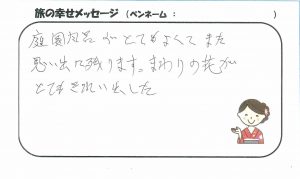 旅の幸せメッセージ （ペンネーム： ）
庭園がとてもよくてまた
思い出に残ります。まわりの花が
とてもきれいでした